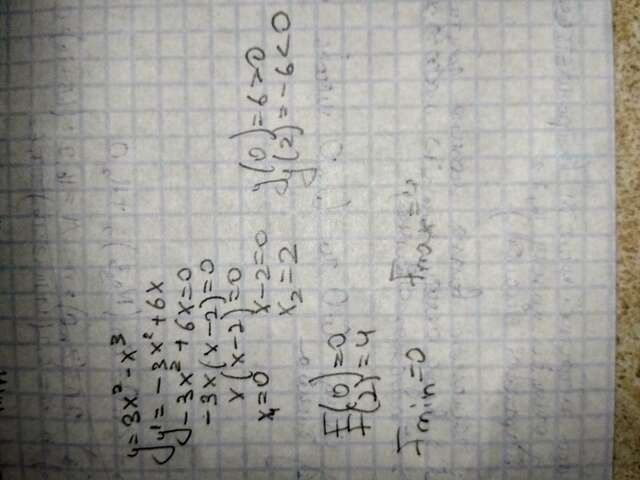 y=3x²-x³
y'=-3x²+6x
-3x²+6x=0
-3x(x-2)=0
x(x-2)=0
x₁=0 x-2=0
x₂=2
y(0)=6>0
y(2)=-6<0
F(0)=0
F(2)=4
Fmin=0 Fmax=4